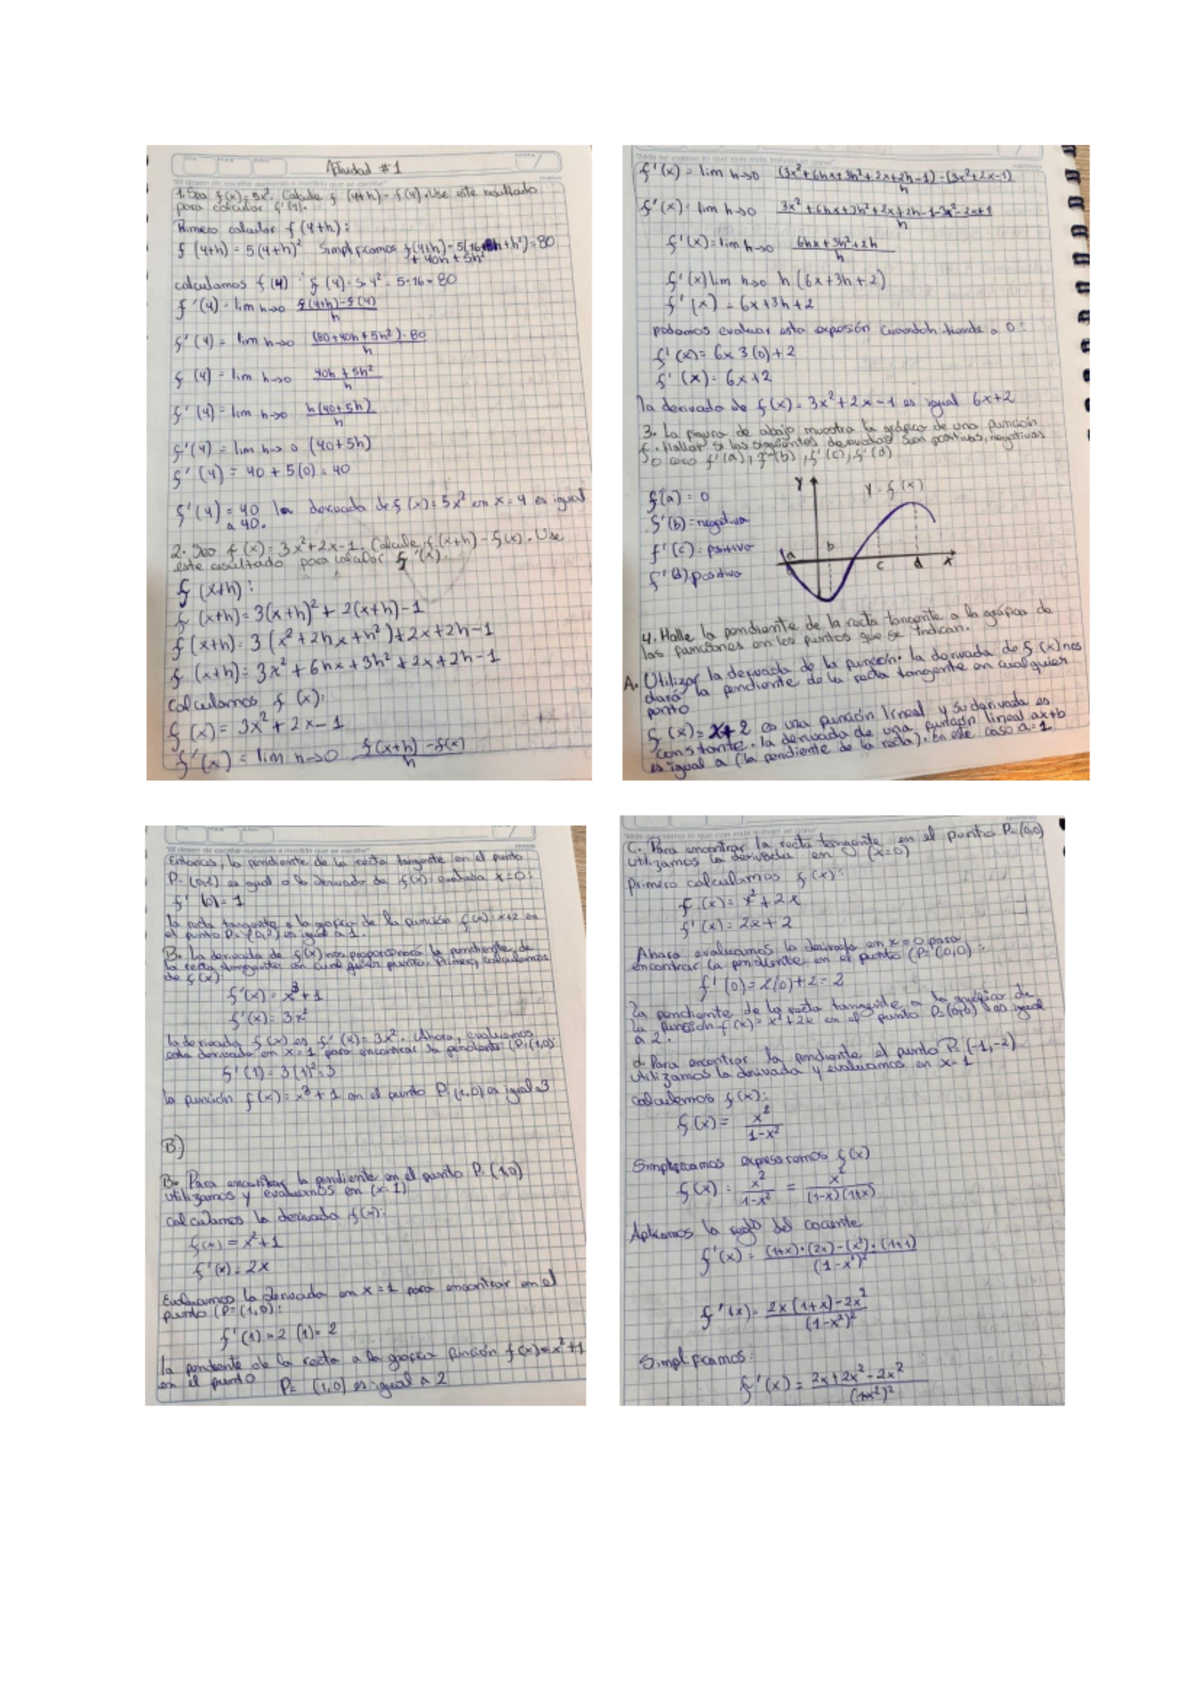 Actividad #1
1. Sea f(x) = 5x². Calcule f (4+h) - f(4). Use este resultado
para calcular f'(4).
Primero calcular f (4+h):
f (4+h) = 5 (4+h)² Simplificamos f(4+h) = 5(16+8h+h²) = 80
+ 40h + 5h²
calculamos f (4) : f (4) = 5·4² = 5·16 = 80
f'(4) = lim h→0 f(4+h)-f(4) / h
f'(4) = lim h→0 (80+40h+5h²)-80 / h
f (4) = lim h→0 40h + 5h² / h
f'(4) = lim h→0 h(40+5h) / h
f'(4) = lim h→0 (40+5h)
f'(4) = 40 + 5(0) = 40
f'(4) = 40 la derivada de f(x) = 5x² en x = 4 es igual
a 40.
2. Sea f(x) = 3x²+2x-1. Calcule f(x+h) - f(x). Use
este resultado para calcular f'(x).
f (x+h):
f (x+h) = 3(x+h)² + 2(x+h) - 1
f (x+h) = 3 (x² + 2hx + h²) + 2x + 2h - 1
f (x+h) = 3x² + 6hx + 3h² + 2x + 2h - 1
calculamos f (x):
f (x) = 3x² + 2x - 1
f'(x) = lim h→0 f(x+h) - f(x) / h
f'(x) = lim h→0 (3x²+6hx+3h²+2x+2h-1) - (3x²+2x-1) / h
f'(x) = lim h→0 3x²+6hx+3h²+2x+2h-1-3x²-2x+1 / h
f'(x) = lim h→0 6hx+3h²+2h / h
f'(x) lim h→0 h (6x+3h+2)
f'(x) = 6x+3h+2
podemos evaluar esta expresión cuando h tiende a 0:
f'(x) = 6x 3(0)+2
f'(x) = 6x+2
la derivada de f(x) = 3x²+2x-1 es igual 6x+2
3. La figura de abajo muestra la gráfica de una función
f. Hallar si las siguientes derivadas son positivas, negativas
o cero f'(a), f'(b), f'(c), f'(d)
f(a) = 0
f'(b) = negativa
f'(c) = positivo
f'(d) positivo
y
y = f(x)
a
b
c
d
x
4. Halle la pendiente de la recta tangente a la gráfica de
las funciones en los puntos que se indican.
A. Utilizar la derivada de la función. la derivada de f(x) nos
dará la pendiente de la recta tangente en cualquier
punto
f(x) = x+2 es una función lineal y su derivada es
constante. la derivada de una función lineal ax+b
es igual a (la pendiente de la recta). En este caso a=1
Entonces, la pendiente de la recta tangente en el punto
P= (0,2) es igual a la derivada de f(x) evaluada x=0:
f' (0) = 1
la recta tangente a la gráfica de la función f(x) = x+2 en
el punto P= (0,2) es igual a 1.
B. La derivada de f(x) nos proporcionará la pendiente de
la recta tangente en cualquier punto. Primero, calculamos
de f(x):
f'(x) = x³+1
f'(x) = 3x²
la derivada f(x) es f'(x) = 3x². Ahora, evaluamos
esta derivada en x=1 para encontrar la pendiente (P=(1,0):
f'(1) = 3(1)² = 3
la función f(x) = x³+1 en el punto P (1,0) es igual 3
B)
B. Para encontrar la pendiente en el punto P= (1,0)
utilizamos y evaluamos en (x=1)
calculamos la derivada f(x):
f(x) = x²+1
f'(x) = 2x
Evaluamos la derivada en x = 1 para encontrar en el
punto (P=(1,0):
f'(1) = 2 (1) = 2
la pendiente de la recta a la grafica función f(x) = x²+1
en el punto P= (1,0) es igual a 2
C. Para encontrar la recta tangente en el punto P= (0,0)
utilizamos la derivada en (x=0)
Primero calculamos f(x):
f (x) = x²+2x
f'(x) = 2x + 2
Ahora evaluamos la derivada en x = 0 para
encontrar la pendiente en el punto (P= (0,0):
f'(0) = 2(0)+2 = 2
la pendiente de la recta tangente a la gráfica de
la función f(x) = x²+2x en el punto P=(0,0) es igual
a 2.
d. Para encontrar la pendiente el punto P= (-1,-2)
utilizamos la derivada y evaluamos en x=1
calculemos f(x):
f(x) = x² / 1-x²
Simplificamos expresaremos f(x)
f(x) = x² / 1-x² = x² / (1-x)(1+x)
Aplicamos la regla del cociente
f'(x) = (1+x)·(2x)-(x²)·(1+1) / (1-x²)²
f'(x) = 2x(1+x)-2x² / (1-x²)²
Simplificamos:
f'(x) = 2x+2x²-2x² / (1-x²)²